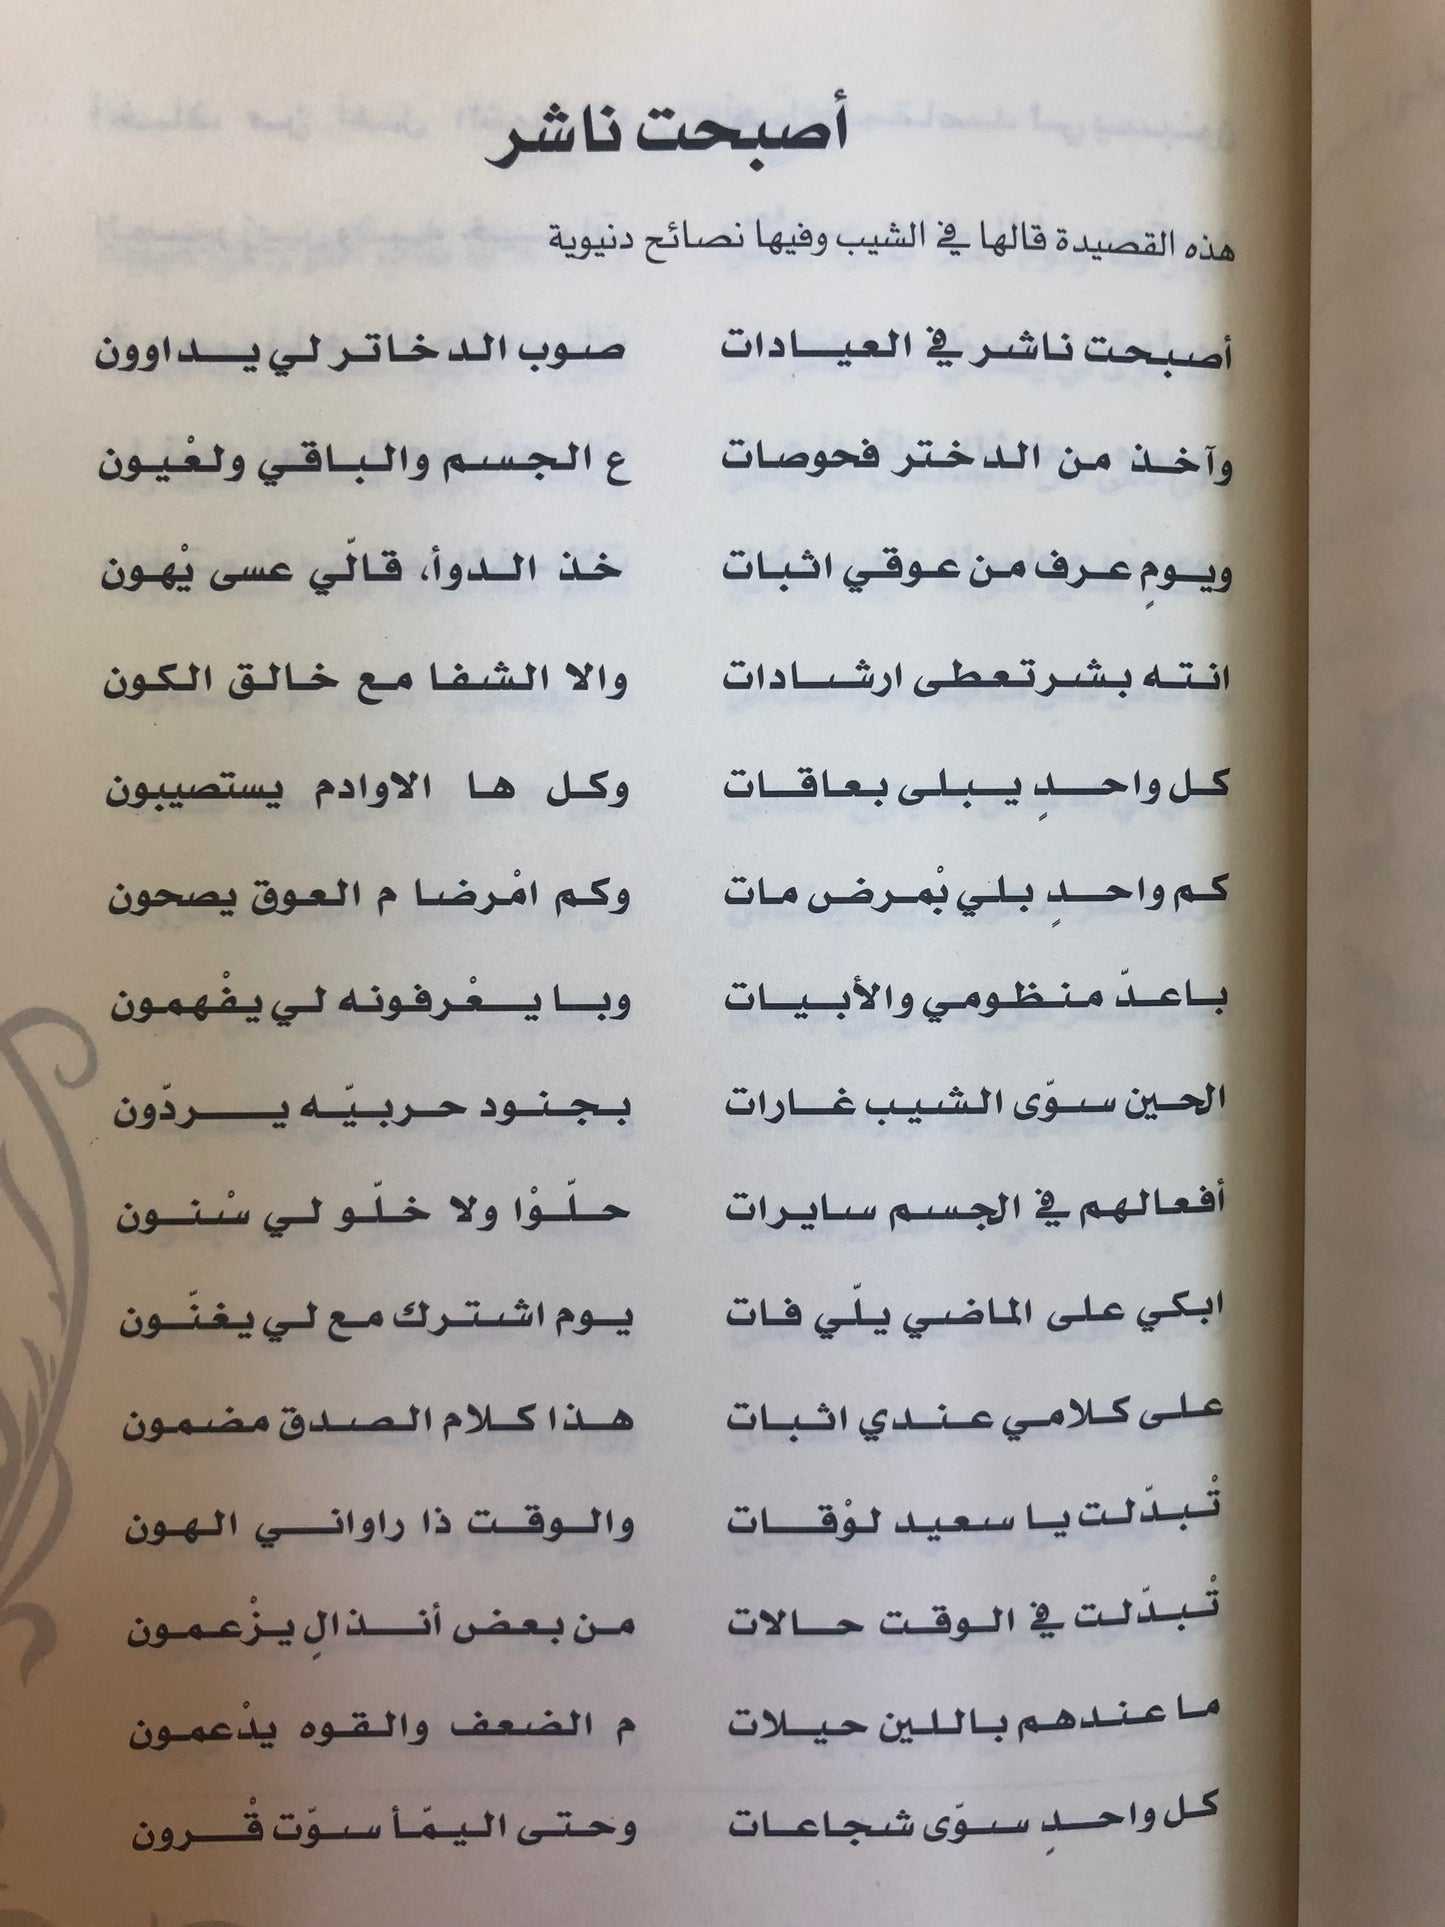 أصبحت ناشر
هذه القصيدة قالها في الشيب وفيها نصائح دنيوية
أصبحت ناشر في العيادات صوب الدخاتر لي يداوون
وآخذ من الدختر فحوصات ع الجسم والباقي ولعْيون
ويومٍ عرف من عوقي اثبات خذ الدوأ، قالّي عسى يْهون
انته بشر تعطى ارشادات والا الشفا مع خالق الكون
كل واحدٍ يبلى بعاقات وكل ها الاوادم يستصيبون
كم واحدٍ بلي بْمرض مات وكم امْرضا م العوق يصحون
باعدّ منظومي والأبيات وبا يعْرفونه لي يفْهمون
الحين سوّى الشيب غارات بجنود حربيّه يردّون
أفعالهم في الجسم سايرات حلّوْا ولا خلّو لي سْنون
ابكي على الماضي يلّي فات يوم اشترك مع لي يغنّون
على كلامي عندي اثبات هذا كلام الصدق مضمون
تْبدّلت يا سعيد لوْقات والوقت ذا راواني الهون
تْبدّلت في الوقت حالات من بعض أنذالٍ يزْعمون
ما عندهم باللين حيلات م الضعف والقوه يدْعمون
كل واحدٍ سوّى شجاعات وحتى اليمّأ سوّت قْرون